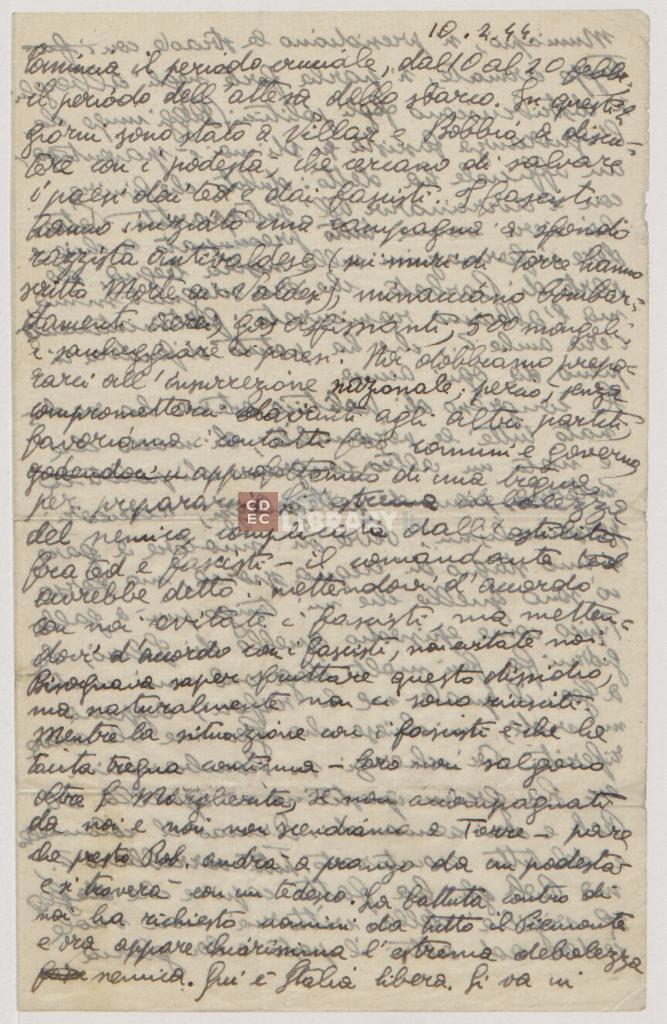 10.2.44.
Comincia il periodo cruciale, dal 10 al 20 febbr.
il periodo dell'attesa dello sbarco. In questi
giorni sono stato a Villar e Bobbio, a discu-
tere con i podestà, che cercano di salvare
i paesi dai ted e dai fascisti. I fascisti
hanno iniziato una campagna a sfondo
razzista antivaldese (sui muri di Torre hanno
scritto Morte ai Valdesi), minacciano bombar-
damenti aerei, gas asfissianti, 500 mongoli
a saccheggiare i paesi. Noi dobbiamo prepa-
rarci all'insurrezione nazionale, perciò, senza
comprometterci davanti agli altri partiti
favoriamo i contatti fra comuni e governo
godendoci approfittiamo di una tregua
per prepararci estrema debolezza
del nemico complicata dall'ostilità
fra ted e fascisti - il comandante ted
avrebbe detto: mettendovi d'accordo
con noi evitate i fascisti, ma metten-
dovi d'accordo con i fascisti, non evitate noi
Bisognava saper sfruttare questo dissidio,
ma naturalmente non ci sono riusciti.
Mentre la situazione con i fascisti è che la
tacita tregua continua - loro non salgono
oltre S. Margherita, se non accompagnati
da noi e noi non scendiamo a Torre - pare
che presto Rob. andrà a pranzo da un podestà
e si troverà con un tedesco. La battuta contro di
noi ha richiesto uomini da tutto il Piemonte
e ora appare chiarissima l'estrema debolezza
nemica. Qui è Italia libera. Si va in
CD
EC LIBRARY